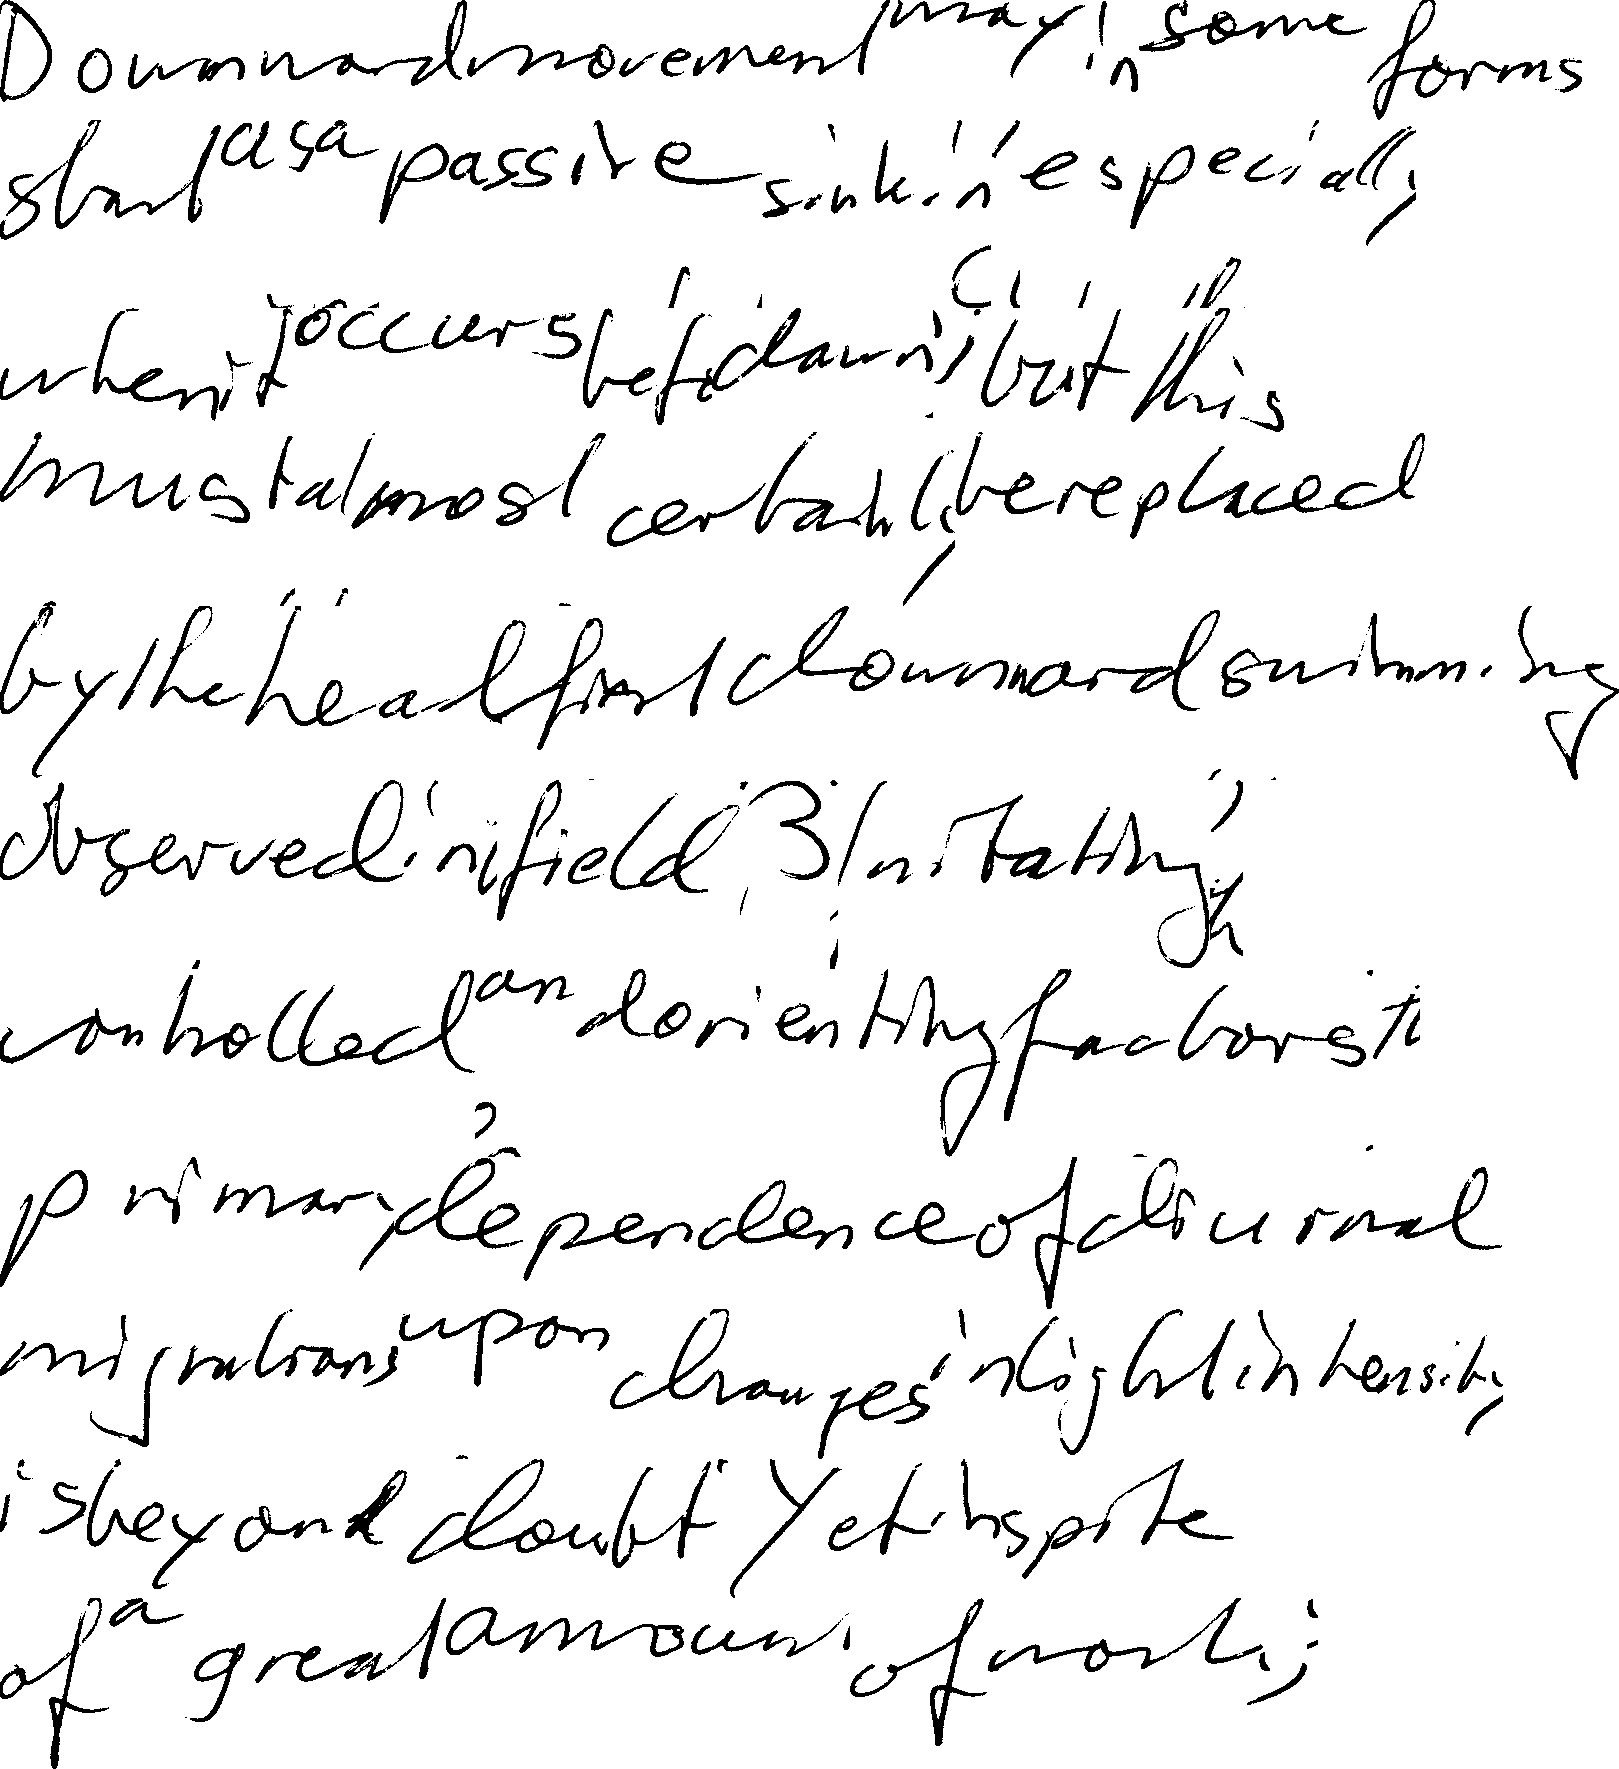 Downward movement may in some forms
start as a passive sinkin especially
when it occurs bef. dawn, but this
must almost certainly be replaced
by the head first downward swimming
observed in field. 3 Initating,
controlled and orienting factors. The
primary dependence of diurnal
migrations upon changes in light intensity
is beyond doubt. Yet in spite
of a great amount of work,